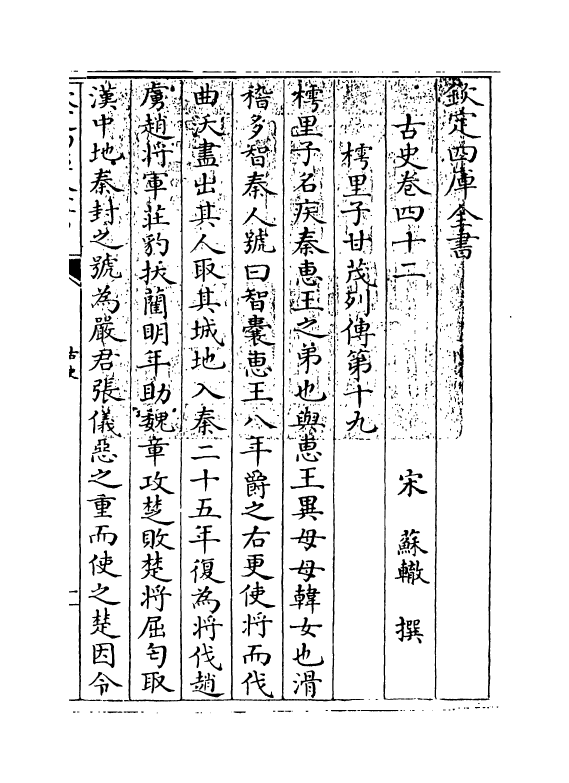 欽定四庫全書
古史卷四十二
宋 蘇轍 撰
樗里子甘茂列傳第十九
樗里子名疾秦惠王之弟也與惠王異母母韓女也滑
稽多智秦人號曰智囊惠王八年爵之右更使將而伐
曲沃盡出其人取其城地入秦二十五年復為將伐趙
虜趙將軍莊豹抜藺明年助魏章攻楚敗楚將屈匄取
漢中地秦封之號為嚴君張儀惡之重而使之楚因令
古史